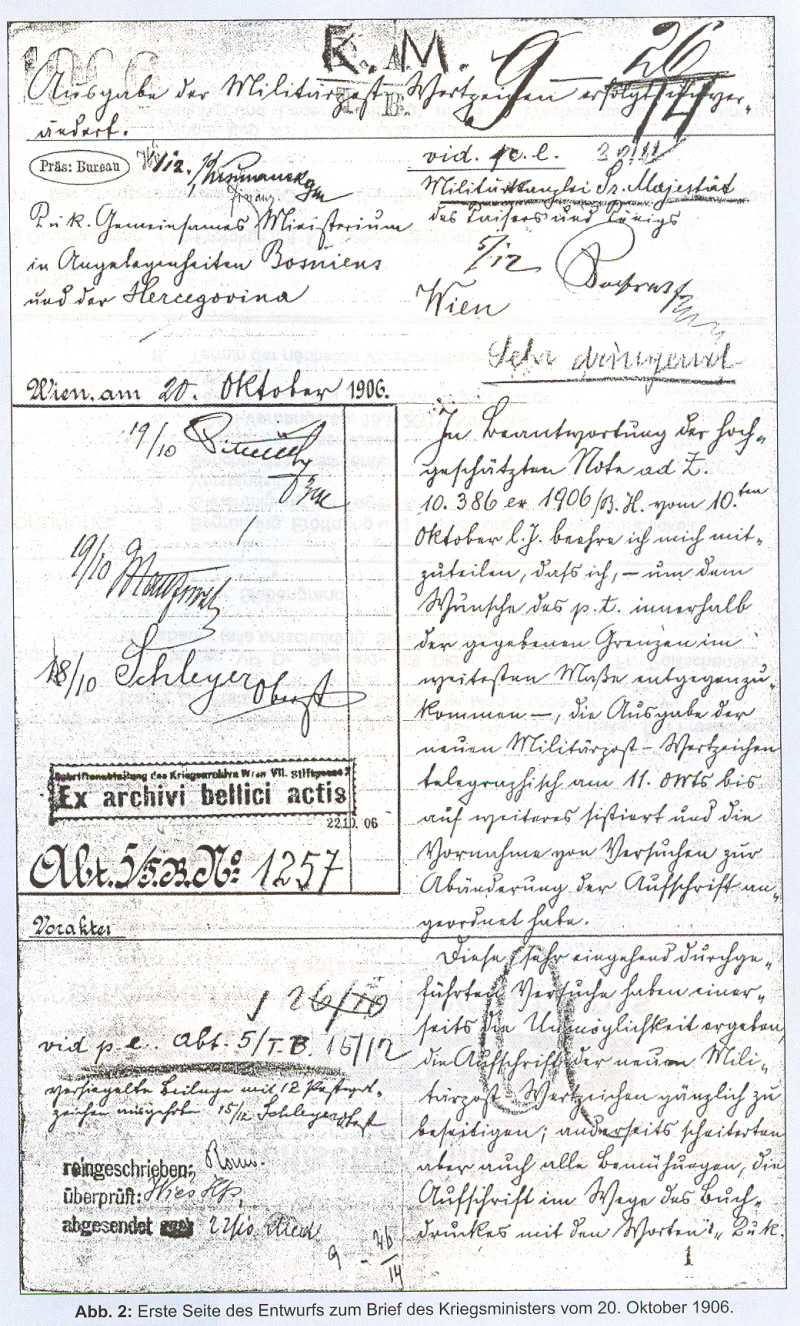 K. M. 9 26/14
Ausgabe der Militärpost-Wertzeichen erfolgt unver-
ändert.
Präs: Bureau
vid. p. e. l.
Militärkanzlei Sr. Majestät
des Kaisers und Königs
5/12
Wien
Sehr dringend
K. u. k. Gemeinsames Ministerium
in Angelegenheiten Bosniens
und der Hercegovina
Wien, am 20. Oktober 1906.
19/10
19/10
18/10 Schleyer Oberst
Schriftenabteilung des Kriegsarchivs Wien VII. Stiftgasse 2
Ex archivi bellici actis
22.10.06
Abt. 5/T.B. No: 1257
Vorakten
26/10
vid p. e. Abt. 5/T.B. 15/12
versiegelte Beilage mit 12 Postwert-
zeichen ausgehoben 15/12 Schleyer Oberst
reingeschrieben:
überprüft:
abgesendet 22/10
9 - 26/14
In Beantwortung der hoch-
geschätzten Note ad Z.
10.386 ex 1906/B.H. vom 10.ten
Oktober l. J. beehre ich mich mit-
zuteilen, daß ich, – um dem
Wunsche des p. t. innerhalb
der gegebenen Grenzen im
weitesten Maße entgegenzu-
kommen –, die Ausgabe der
neuen Militärpost-Wertzeichen
telegraphisch am 11. Okts bis
auf weiteres sistiert und die
Vornahme von Versuchen zur
Abänderung der Aufschrift an-
geordnet habe.
Diese sehr eingehend durchge-
führten Versuche haben einer-
seits die Unmöglichkeit ergeben,
die Aufschrift der neuen Mili-
tärpost-Wertzeichen gänzlich zu
beseitigen; anderseits scheiterten
aber auch alle Bemühungen, die
Aufschrift im Wege des Buch-
druckes mit den Worten: „K. u. k.
1
Abb. 2: Erste Seite des Entwurfs zum Brief des Kriegsministers vom 20. Oktober 1906.